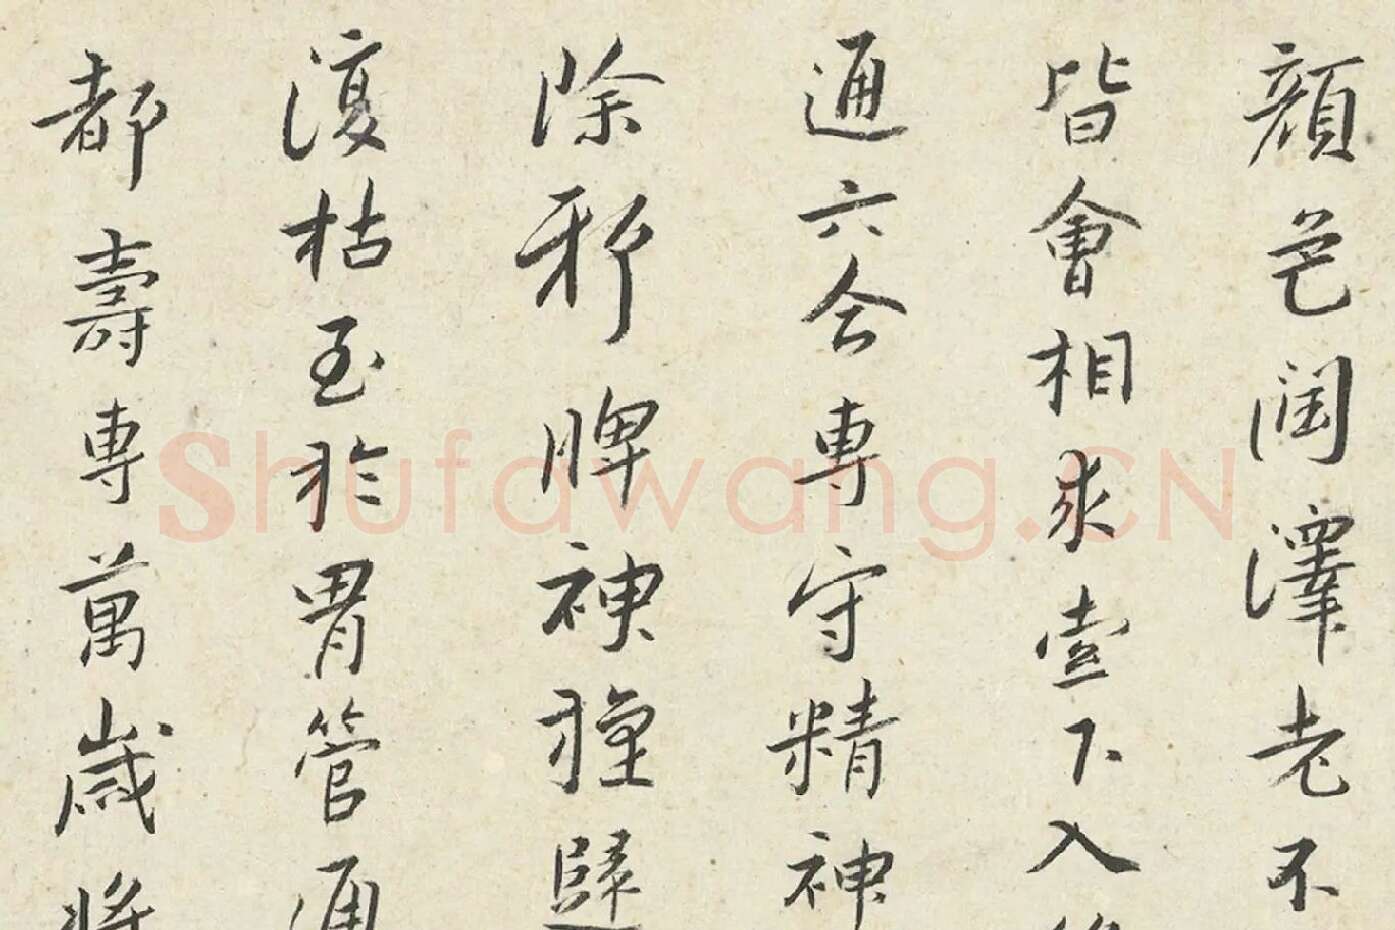 顏色潤澤老不
皆會相求壹下入
通六合專守精神
除邪脾神還歸
復枯至於胃管通
都壽專萬歲將
Shufawang.CN